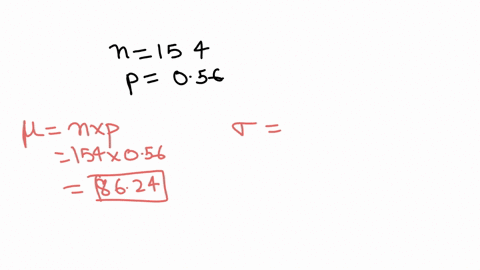 n=154
p= 0.56
μ= n×p
=154×0.56
= 86.24
σ =